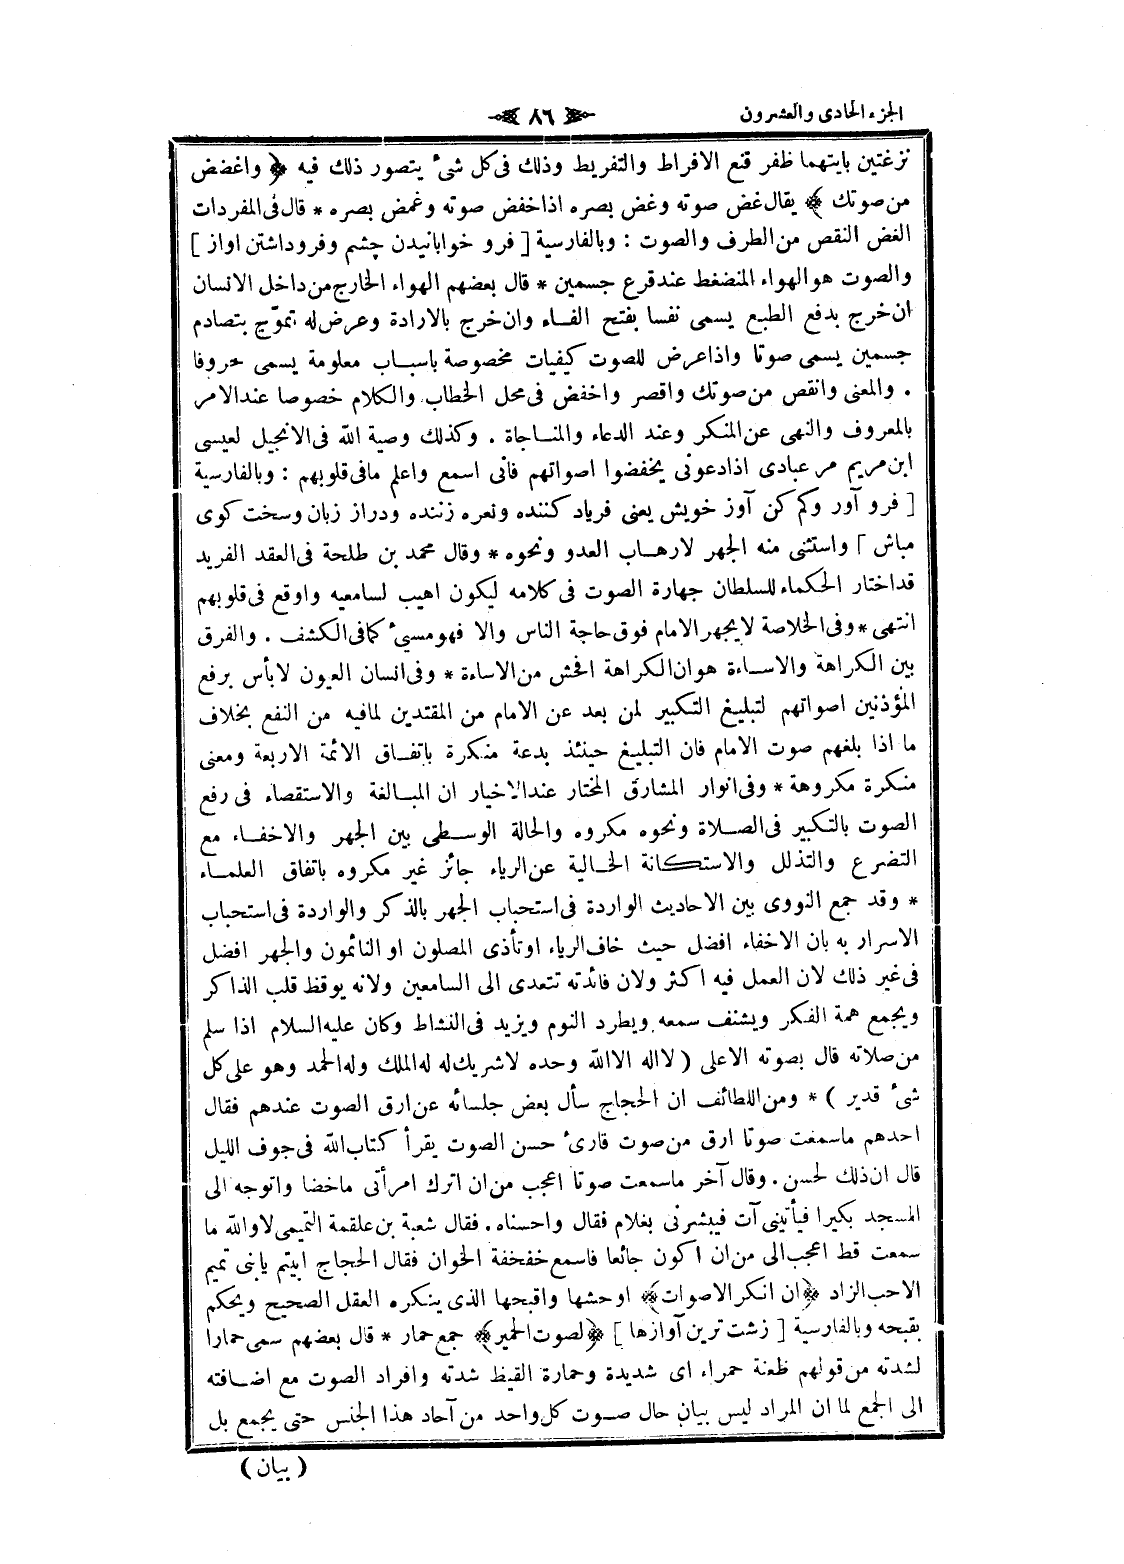 الجزء الحادى والعشرون
٨٦
نزغتين بايتهما ظفر قنع الافراط والتفريط وذلك فى كل شىء يتصور ذلك فيه ﴿ واغضض
من صوتك ﴾ يقال غض صوته وغض بصره اذا خفض صوته وغمض بصره * قال فى المفردات
الغض النقص من الطرف والصوت : وبالفارسية [ فرو خوابانيدن چشم وفروداشتن اواز ]
والصوت هو الهواء المنضغط عند قرع جسمين * قال بعضهم الهواء الخارج من داخل الانسان
ان خرج بدفع الطبع يسمى نفسا بفتح الفاء وان خرج بالارادة وعرض له تموّج بتصادم
جسمين يسمى صوتا واذا عرض للصوت كيفيات مخصوصة باسباب معلومة يسمى حروفا
. والمعنى وانقص من صوتك واقصر واخفض فى محل الخطاب والكلام خصوصا عند الامر
بالمعروف والنهى عن المنكر وعند الدعاء والمناجاة . وكذلك وصية الله فى الانجيل لعيسى
ابن مريم مر عبادى اذا دعونى يخفضوا اصواتهم فانى اسمع واعلم ما فى قلوبهم : وبالفارسية
[ فرو آور وكم كن آوز خويش يعنى فرياد كننده ونعره زننده ودراز زبان وسخت كوى
مباش ] واستثنى منه الجهر لارهاب العدو ونحوه * وقال محمد بن طلحة فى العقد الفريد
قد اختار الحكماء للسلطان جهارة الصوت فى كلامه ليكون اهيب لسامعيه واوقع فى قلوبهم
انتهى * وفى الخلاصة لا يجهر الامام فوق حاجة الناس والا فهو مسىء كما فى الكشف . والفرق
بين الكراهة والاساءة هو ان الكراهة افحش من الاساءة * وفى انسان العيون لا بأس برفع
المؤذنين اصواتهم لتبليغ التكبير لمن بعد عن الامام من المقتدين لما فيه من النفع بخلاف
ما اذا بلغهم صوت الامام فان التبليغ حينئذ بدعة منكرة باتفاق الائمة الاربعة ومعنى
منكرة مكروهة * وفى انوار المشارق المختار عند الاخيار ان المبالغة والاستقصاء فى رفع
الصوت بالتكبير فى الصلاة ونحوه مكروه والحالة الوسطى بين الجهر والاخفاء مع
التضرع والتذلل والاستكانة الخالية عن الرياء جائز غير مكروه باتفاق العلماء
* وقد جمع النووى بين الاحاديث الواردة فى استحباب الجهر بالذكر والواردة فى استحباب
الاسرار به بان الاخفاء افضل حيث خاف الرياء او تأذى المصلون او النائمون والجهر افضل
فى غير ذلك لان العمل فيه اكثر ولان فائدته تتعدى الى السامعين ولانه يوقظ قلب الذاكر
ويجمع همة الفكر ويشنف سمعه ويطرد النوم ويزيد فى النشاط وكان عليه السلام اذا سلم
من صلاته قال بصوته الاعلى ( لا اله الا الله وحده لا شريك له له الملك وله الحمد وهو على كل
شىء قدير ) * ومن اللطائف ان الحجاج سأل بعض جلسائه عن ارق الصوت عندهم فقال
احدهم ما سمعت صوتا ارق من صوت قارئ حسن الصوت يقرأ كتاب الله فى جوف الليل
قال ان ذلك لحسن . وقال آخر ما سمعت صوتا اعجب من ان اترك امرأتى ماخضا واتوجه الى
المسجد بكيرا فيأتينى آت فيبشرنى بغلام فقال واحسناه . فقال شعبة بن علقمة التميمى لا والله ما
سمعت قط اعجب الى من ان اكون جائعا فاسمع خفخفة الخوان فقال الحجاج ابيتم يا بنى تميم
الا حب الزاد ﴿ ان انكر الاصوات ﴾ اوحشها واقبحها الذى ينكره العقل الصحيح ويحكم
بقبحه وبالفارسية [ زشت ترين آوازها ] ﴿ لصوت الحمير ﴾ جمع حمار * قال بعضهم سمى حمارا
لشدته من قولهم ظعنة حمراء اى شديدة وحمارة القيظ شدته وافراد الصوت مع اضافته
الى الجمع لما ان المراد ليس بيان حال صوت كل واحد من آحاد هذا الجنس حتى يجمع بل
( بيان )